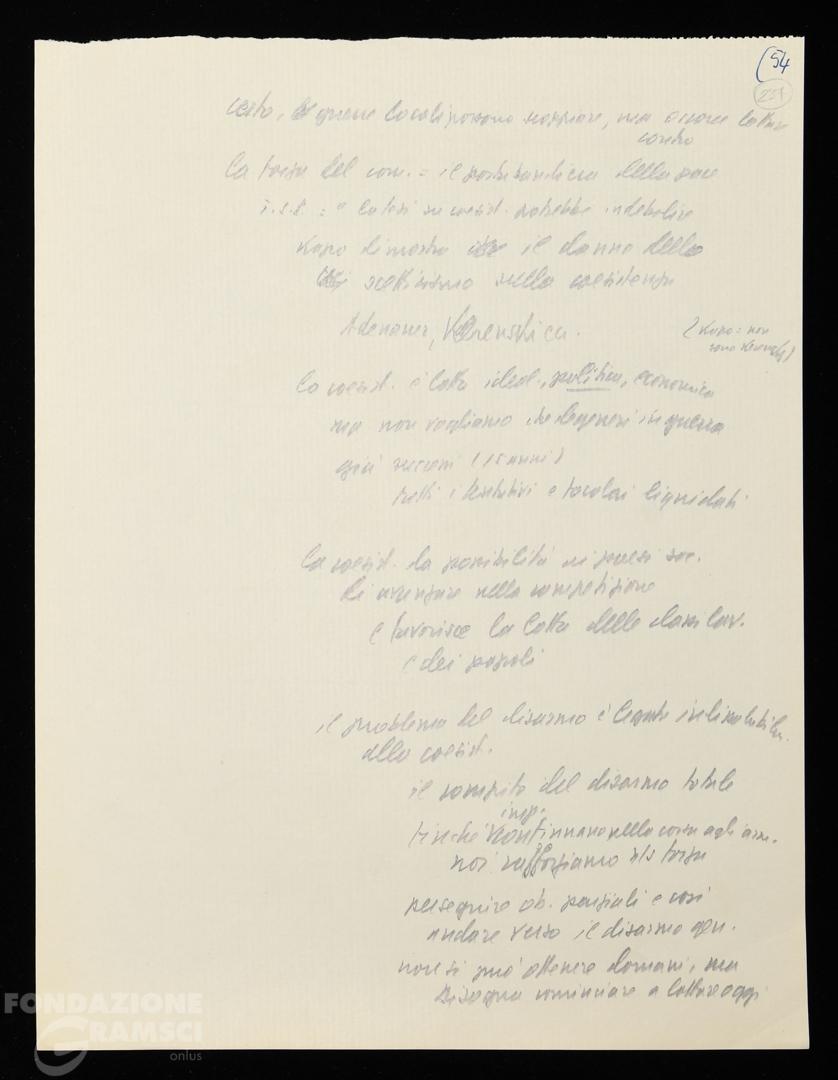 (54
237
certo, guerre locali possono scoppiare, ma occorre lottare
contro
la forza del com. = il portabandiera della pace
la tesi su coesist. potrebbe indebolire
Kapo dimostra il danno dello
scetticismo sulla coesistenza
Adenauer, Kerenski ecc.
(Kapo = non
sono Kerensky)
la coesist. è lotta ideol., politica, economica
ma non vogliamo che degeneri in guerra
già successi (15 anni)
tutti i tentativi e focolai liquidati
la coesist. da possibilità ai paesi soc.
di avanzare nella competizione
e favorisce la lotta delle classi lav.
e dei popoli
il problema del disarmo è legato indissolubilm.
alla coesist.
il compito del disarmo totale
imp.
finché continuano nella corsa agli arm.
noi rafforziamo ns forza
perseguire ob. parziali e così
andare verso il disarmo gen.
non si può ottenere domani, ma
bisogna cominciare a lottare oggi
FONDAZIONE
GRAMSCI
onlus